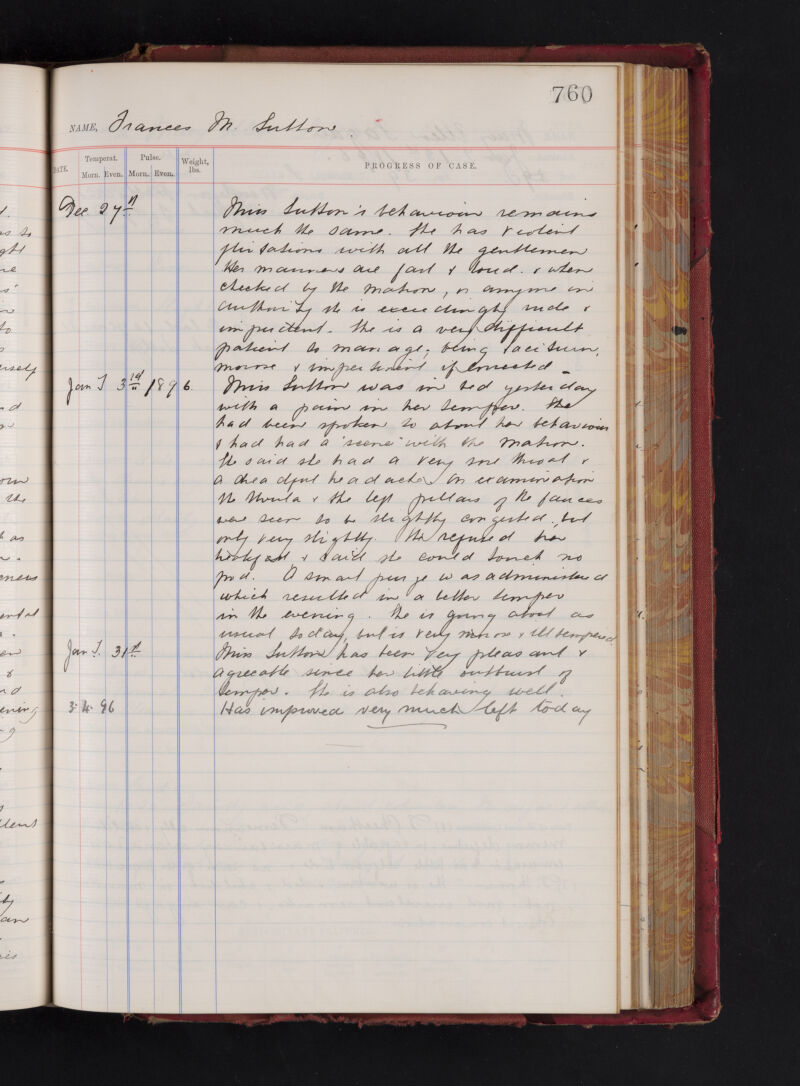 760
NAME, Frances M. Sutton.
DATE. Temperat. Pulse. Weight, lbs. PROGRESS OF CASE.
Morn. Even. Morn. Even.
Dec 27th Miss Sutton's behaviour remains
much the same. She has violent
flirtations with all the gentlemen
Her manners are fast & loud. & when
checked by the matron, or anyone in
authority she is exceedingly rude &
impudent. She is a very difficult
patient to manage, being taciturn,
morose & impertinent if corrected -
Jany 3rd 1896. Miss Sutton was in bed yesterday
with a pain in her temper. She
had been spoken to about her behaviour
& had had a "scene" with the matron.
She said she had a very sore throat &
a dreadful headache. On examination
the Uvula & the left pillars of the fauces
were seen to be slightly congested, but
only very slightly. She refused her
breakfast & said she could touch no
food. A smart purge was administered
which resulted in a better temper
in the evening. She is going about as
usual today, but is very morose & ill tempered.
Jany. 31st Miss Sutton has been very pleasant &
agreeable since her little outburst of
temper. She is also behaving well.
3. 4. 96 Has improved very much left today